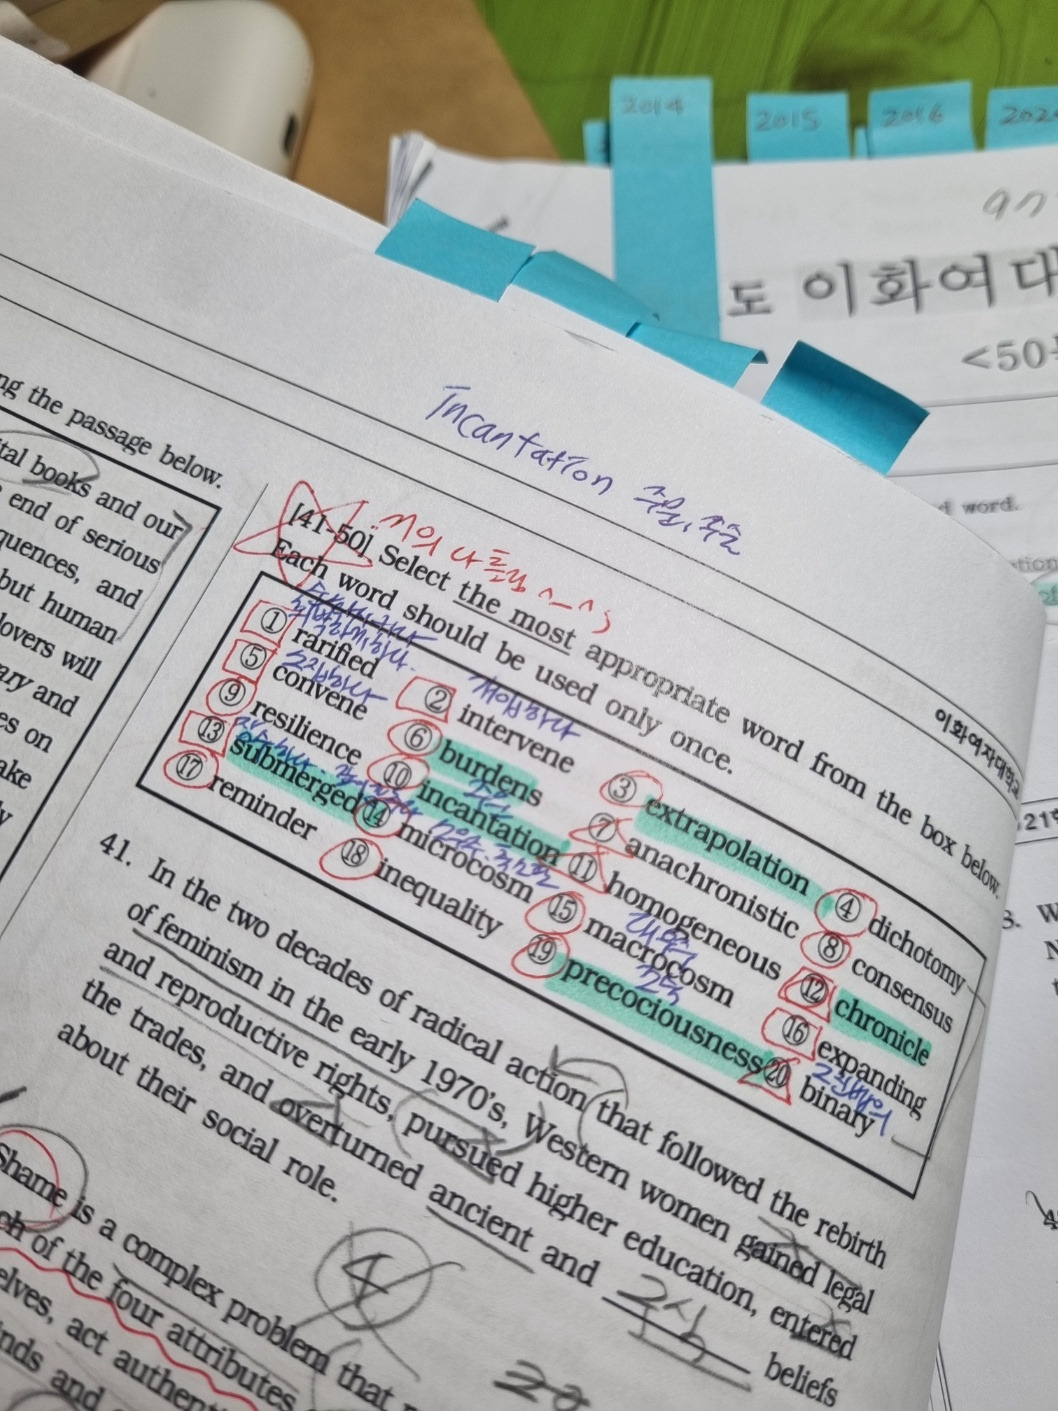 2014
2015
2016
도 이화여대
<50
Incantation 주문, 주술
ng the passage below.
ital books and our
end of serious
quences, and
but human
lovers will
ary and
es on
ake
y
거의 다 틀림 ^_^;
[41-50] Select the most appropriate word from the box below.
Each word should be used only once.
① rarified ② intervene ③ extrapolation ④ dichotomy
개입하다
⑤ convene ⑥ burdens ⑦ anachronistic ⑧ consensus
소집하다
⑨ resilience ⑩ incantation ⑪ homogeneous ⑫ chronicle
주문
⑬ submerged ⑭ microcosm ⑮ macrocosm ⑯ expanding
⑰ reminder ⑱ inequality ⑲ precociousness ⑳ binary
이화여자대학교
41. In the two decades of radical action that followed the rebirth
of feminism in the early 1970's, Western women gained legal
and reproductive rights, pursued higher education, entered
the trades, and overturned ancient and ______ beliefs
about their social role.
Shame is a complex problem that
ch of the four attributes
elves, act authenti
inds and
word.